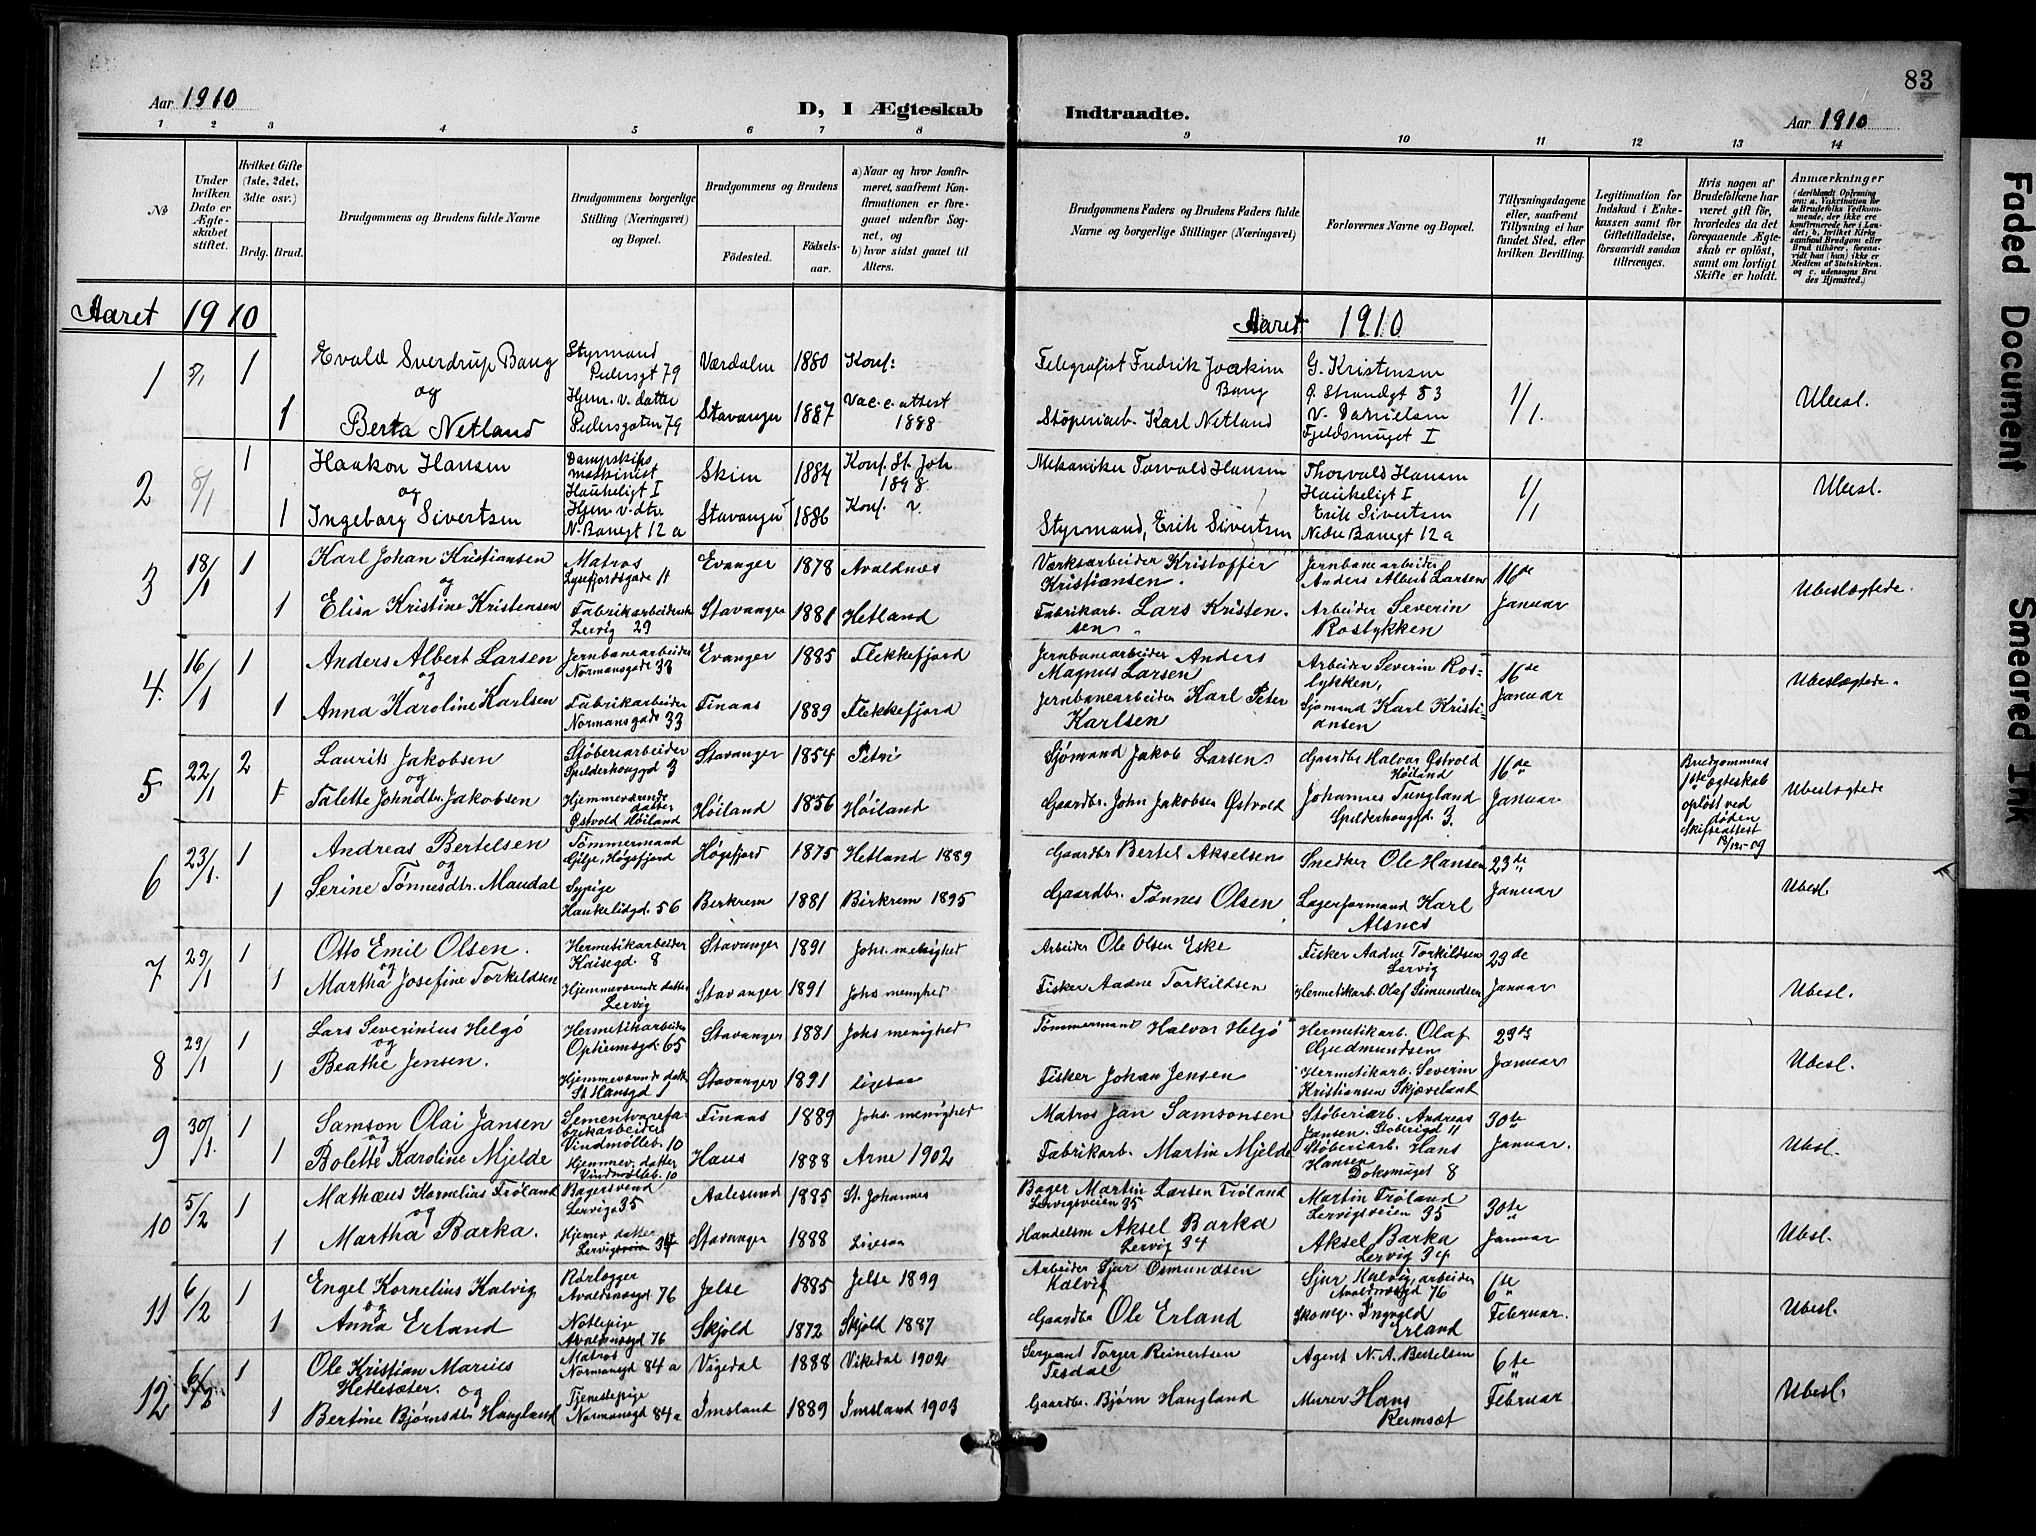 83
Aar 1910
D, I Ægteskab Indtraadte.
Aar 1910
1 2 3 4 5 6 7 8 9 10 11 12 13 14
№
Under hvilken Dato er Ægteskabet stiftet.
Hvilket Gifte (1ste, 2det, 3die osv.)
Brdg. Brud.
Brudgommens og Brudens fulde Navne
Brudgommens borgerlige Stilling (Næringsvei) og Bopæl.
Brudgommens og Brudens
Fødested.
Fødselsaar.
a) Naar og hvor konfirmeret, saafremt Konfirmationen er foregaaet udenfor Sognet, og
b) hvor sidst gaaet til Alters.
Brudgommens Faders og Brudens Faders fulde Navne og borgerlige Stillinger (Næringsvei)
Forlovernes Navne og Bopæl.
Tillysningsdagene eller, saafremt Tillysning ei har fundet Sted, efter hvilken Bevilling.
Legitimation for Indskud i Enkekassen samt for Giftetilladelse, forsaavidt saadan tiltrænges.
Hvis nogen af Brudefolkene har været gift før, hvorledes da det foregaaende Ægteskab er opløst, samt om lovligt Skifte er holdt.
Anmærkninger
Aaret 1910
Aaret 1910
1 5/1 1 Evald Sverdrup Bang Styrmand Pedersgt 79 Værdalen 1880 Konf: Telegrafist Fredrik Joakim Bang G. Kristensen Ø. Strandgt 53 1/1. Ubesl.
og
1 Berta Netland Hjem. v. datter Pedersgaten 79 Stavanger 1887 Vac. c. attest 1888 Støperiarb. Karl Netland V. Danielsen Fjeldsmuget I
2 8/1 1 Haakon Hansen Dampskibs maskinist Haukeligt I Skien 1884 Konf. St. Joh. 1898. Mekaniker Torvald Hansen Thorvald Hansen Haukeligt I 1/1 Ubesl.
og
1 Ingeborg Sivertsen Hjem. v. dtr. N. Banegt 12 a Stavanger 1886 Konf. Styrmand, Erik Sivertsen Erik Sivertsen Nedre Banegt 12 a
3 18/1 1 Karl Johan Kristiansen Matros Lysefjordsgade 11 Evanger 1878 Avaldnes Værksarbeider Kristoffer Kristiansen. Jernbanearbeider Anders Albert Larsen 16de Januar Ubeslægtede.
og
1 Elisa Kristine Kristensen Fabrikarbeiderske Lervig 29 Stavanger 1881 Hetland Fabrikarb. Lars Kristensen. Arbeider Severin Roslykken
4. 16/1 1 Anders Albert Larsen Jernbanearbeider Normansgade 33 Evanger 1885 Flekkefjord Jernbanearbeider Anders Magnus Larsen Arbeider Severin Roslykken, 16de Januar Ubeslægtede.
og
1 Anna Karoline Karlsen Fabrikarbeider Normansgade 33 Finaas 1889 Flekkefjord Jernbanearbeider Karl Peter Karlsen Sjømand Karl Kristiansen
5 22/1 2 Laurits Jakobsen Støberiarbeider Spilderhauggd 3 Stavanger 1854 Petri Sjømand Jakob Larsen. Gaardbr Halvar Østvold Høiland 16de Januar Brudgommens 1ste ægteskab opløst ved døden Skifteattest 18/12-09 Ubeslægtede
og
1 Talette Johndtr. Jakobsen Hjemmeværende datter Østvold Høiland Høiland 1856 Høiland Gaardbr. John Jakobsen Østvold Johannes Tungland Spilderhauggd. 3.
6 23/1. 1 Andreas Bertelsen Tømmermand Gilje, Høgsfjord Høgsfjord 1875 Hetland 1889 Gaardbr Bertel Akselsen Snedker Ole Hansen 23de Januar Ubesl.
og
1 Serine Tønnesdtr. Maudal Sypige Haukeligd. 56 Birkrem 1881 Birkrem 1895 Gaardbr. Tønnes Olsen Lagerformand Karl Alsnes
7 29/1 1 Otto Emil Olsen. Hermetikarbeider Kaisegd. 8 Stavanger 1891 Johs. menighed Arbeider Ole Olsen Eske Fisker Aadne Torkildsen Lervig 23de Januar Ubesl.
og
1 Martha Josefine Torkildsen Hjemmeværende datter Lervig Stavanger 1891 Johs menighed Fisker Aadne Torkildsen Hermetikarb. Olaf Simundsen
8 29/1 1 Lars Severinius Helgø Hermetikarbeider Optiemsgd. 65 Stavanger 1881 Johs menighed Tømmermand Halvor Helgø Hermetikarb. Olaf Gudmundsen 29de Januar Ubesl.
og
1 Beathe Jensen. Hjemmeværende datter St Hansgd 1 Stavanger 1891 ligesaa Fisker Johan Jensen Hermetikarb. Severin Kristiansen Skjæveland
9 30/1. 1 Samson Olai Jansen Sementvarefabrikarbeider Vindmølleb. 10 Finaas 1889 Johs. menighed Matros Jan Samsonsen Støberiarb. Andreas Jansen. Støberigd 11 30te Januar. Ubesl.
og
1 Bolette Karoline Mjelde Hjemmev. datter Vindmølleb. 10 Haus 1888 Arne 1902 Fabrikarb. Martin Mjelde Støberiarb. Hans Hansen Doksmuget 8
10 5/2 1 Mathæus Kornelius Frøland Bagersvend Lervigv 35 Aalesund 1885 St. Johannes Bager Martin Larsen Frøland Lervigsveien 35 Martin Frøland Lervigsveien 35 30te Januar Ubesl.
og
1 Martha Barka. Hjemev. datter Lervigsvein 34 Stavanger 1888 Ligesaa Handelsm Aksel Barka Lervig 34 Aksel Barka Lervig 34
11 6/2 1 Engel Kornelius Kalvig Rørlægger Avaldnesgd 76 Jelse 1885 Jelse 1899 Arbeider Sjur Osmundsen Kalvig Sjur Kalvig, arbeider Avaldnesgd 76 6te Februar. Ubesl.
og
1 Anna Erland Notepige Avaldnesgd 76 Skjold 1872 Skjold 1887 Gaardbr Ole Erland Skomp. Ingvald Erland
12 6/2 1 Ole Kristian Marius Hetlesæter. Matros Normansgd 84 a Vigedal 1888 Vikedal 1902 Sergeant Torger Reinertsen Tesdal Agent N. A. Bertelsen 6te Februar Ubesl.
og
1 Bertine Bjørnsdtr Haugland Tjenestepige Normansgd 84 a Imsland 1889 Imsland 1903 Gaardbr. Bjørn Haugland Murer Hans Remsæt
Faded Document
Smeared Ink